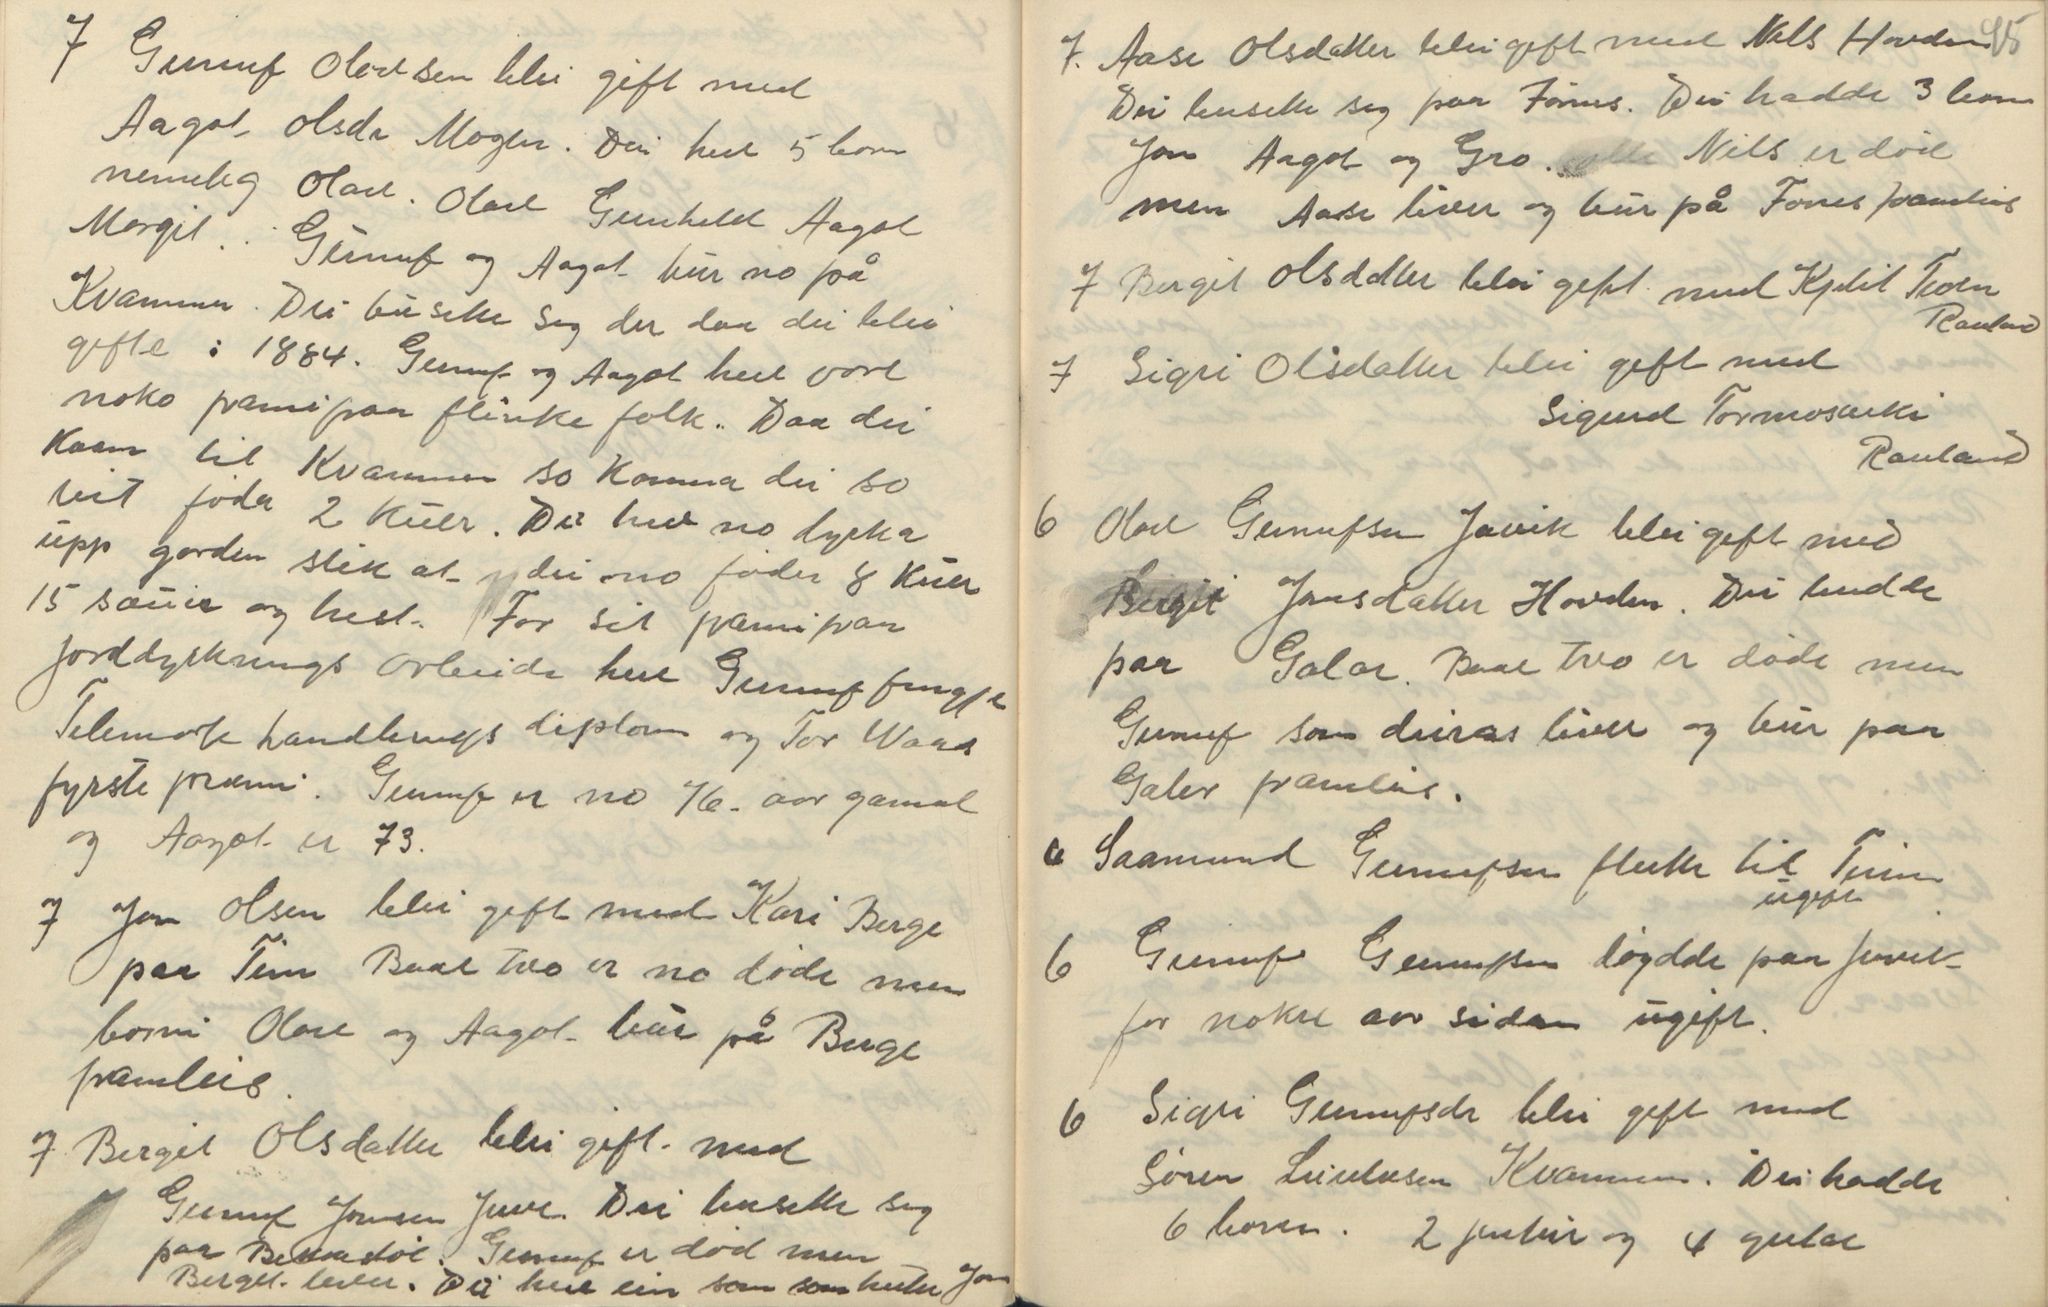 7 Gunuf Olavsen blei gift med
Aagot Olsdr Mogen. Dei heve 5 born
nemeleg Olav. Olav Gunhild Aagot
Margit. Gunuf og Aagot bur no på
Kvammen. Dei busette seg der daa dei blei
gifte i 1884. Gunuf og Aagot heve vore
noko framifraa flinke folk. Daa dei
kaam til Kvammen so kunna dei so
vit föda 2 kuer. Dei heve no dyrka
upp garden slik at dei no föder 8 kuer
15 sauer og hest. For sit framifraa
jorddyrknings arbeide heve Gunuf fengje
Telemark handlings diplom og Tor Waas
fyrste premi. Gunuf er no 76 aar gamal
og Aagot er 73.
7 Jon Olsen blei gift med Kari Berge
paa Tinn Baae tvo er no döde men
borni Olav og Aagot bur på Berge
framleis.
7 Bergit Olsdatter blei gift med
Gunuf Jonsen Juve. Dei busette seg
paa Gunuf er död men
Bergit lever. Dei heve ein son som heiter Jon
45
7. Aase Olsdatter blei gift med Nils Hovden
Dei busette seg paa Fönnes. Dei hadde 3 born
Jon Aagot og Gro. Nils er död
men Aase liver og bur på Fones framleis
7 Bergit Olsdatter blei gift med Kjetil
Rauland
7 Sigri Olsdatter blei gift med
Sigurd
Rauland
6 Olav Gunufsen Juvik blei gift med
Bergit Jonsdatter Hovden. Dei budde
paa Galar. Baae tvo er döde men
Gunuf son deiras liver og bur paa
Galer framleis.
6 Saamund Gunufsen flutte til Tinn
ugift
6 Gunuf Gunufsen döydde paa Juvik
for nokre aar sidan ugift.
6 Sigri Gunufsdr blei gift med
Sören Kvammen. Dei hadde
6 born. 2 jentur og 4 gutar